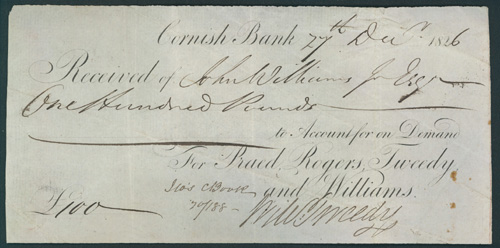 Cornish Bank 7th Decr. 1826
Received of John Williams Jr Esqr
One Hundred Pounds
to Account for on Demand
For Praed, Rogers, Tweedy
and Williams.
£100
Will Tweedy